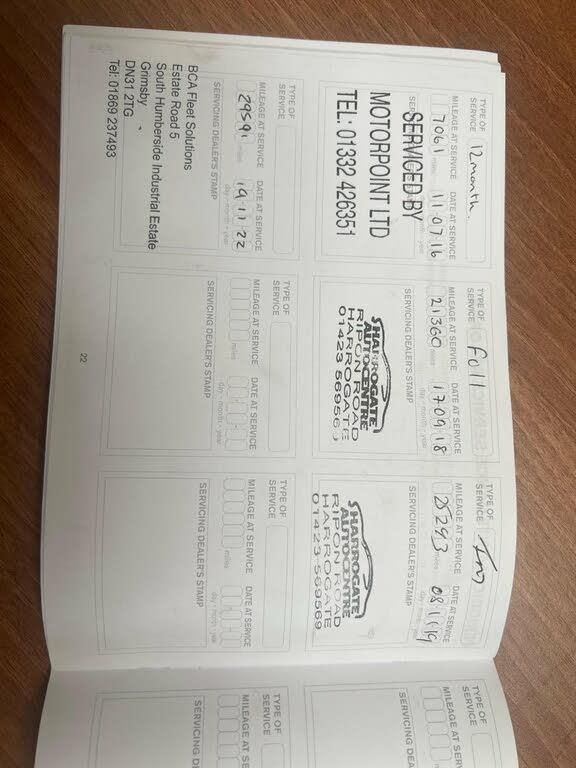 TYPE OF SERVICE 12 month.
MILEAGE AT SERVICE DATE AT SERVICE
7061 miles 11 07 16
day - month - year
SERVICED BY
MOTORPOINT LTD
TEL: 01332 426351
TYPE OF SERVICE Full
MILEAGE AT SERVICE DATE AT SERVICE
21360 miles 17 09 18
day - month - year
SERVICING DEALER'S STAMP
SHARROGATE
AUTOCENTRE
RIPON ROAD
HARROGATE
01423 569569
TYPE OF SERVICE
MILEAGE AT SERVICE DATE AT SERVICE
25293 08 11 19
day - month - year
SERVICING DEALER'S STAMP
SHARROGATE
AUTOCENTRE
RIPON ROAD
HARROGATE
01423 569569
TYPE OF SERVICE
MILEAGE AT SERVICE DATE AT SERV
SERVICING DEA
TYPE OF SERVICE
MILEAGE AT SERVICE DATE AT SERVICE
29591 miles 19 11 22
day - month - year
SERVICING DEALER'S STAMP
BCA Fleet Solutions
Estate Road 5
South Humberside Industrial Estate
Grimsby
DN31 2TG
Tel: 01869 237493
TYPE OF SERVICE
MILEAGE AT SERVICE DATE AT SERVICE
miles day - month - year
SERVICING DEALER'S STAMP
TYPE OF SERVICE
MILEAGE AT SERVICE DATE AT SERVICE
miles day - month - year
SERVICING DEALER'S STAMP
TYPE OF SERVICE
MILEAGE AT SERV
SERVICING DEA
22